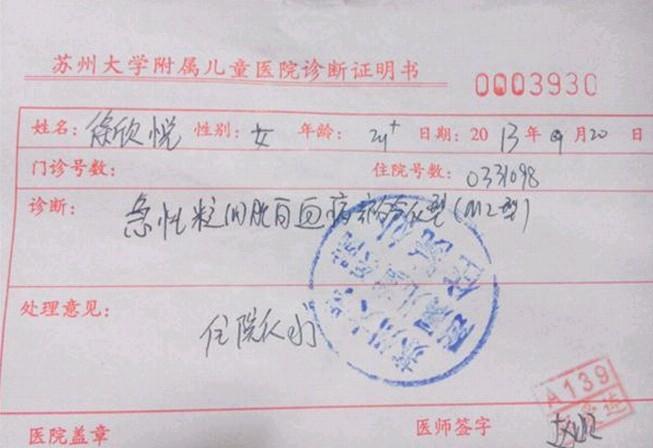 苏州大学附属儿童医院诊断证明书 0003930
姓名: 徐欣悦 性别: 女 年龄: 2y+ 日期: 2013年9月20日
门诊号数: 住院号数: 0331098
诊断: 急性粒细胞白血病部分分化型(M2型)
处理意见:
住院化疗
A139
医院盖章 医师签字